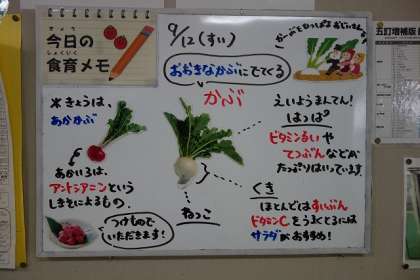 きょう
今日の
しょくいく
食育メモ
9/12(すい)
おおきなかぶにでてくる
かぶ
※きょうは、
あかかぶ
あかいろは、
アントシアニンという
しきそによるもの。
つけもので
いただきます!
ねっこ
えいようまんてん!
はっぱ
ビタミンるいや
てつぶんなどが
たっぷりはいっています
くき
ほとんどはすいぶん
ビタミンCをうまくとるには
サラダがおすすめ!
五訂増補版